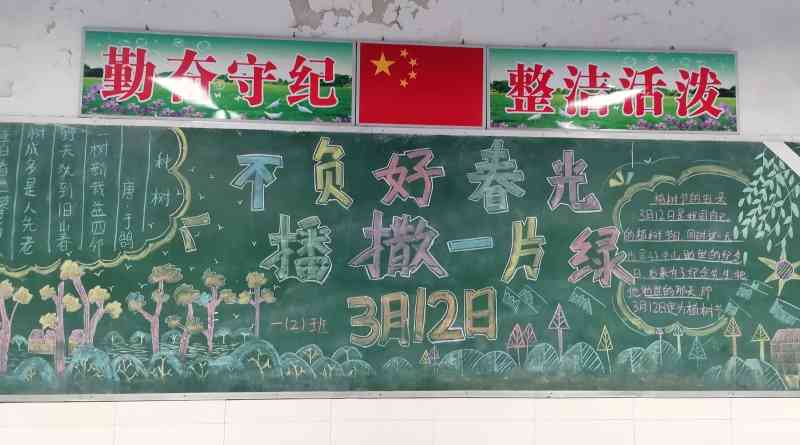 勤奋守纪
整洁活泼
种树
唐·于鹄
一树新栽益四邻
野夫如到旧山春
树成多是人先老
不负好春光
播撒一片绿
3月12日
一(2)班
植树节的由来
3月12日是我国自己
的植树节日,同时这一天
也是孙中山逝世的纪念
日,后来为了纪念先生把
他逝世的那天即
3月12日定为植树节